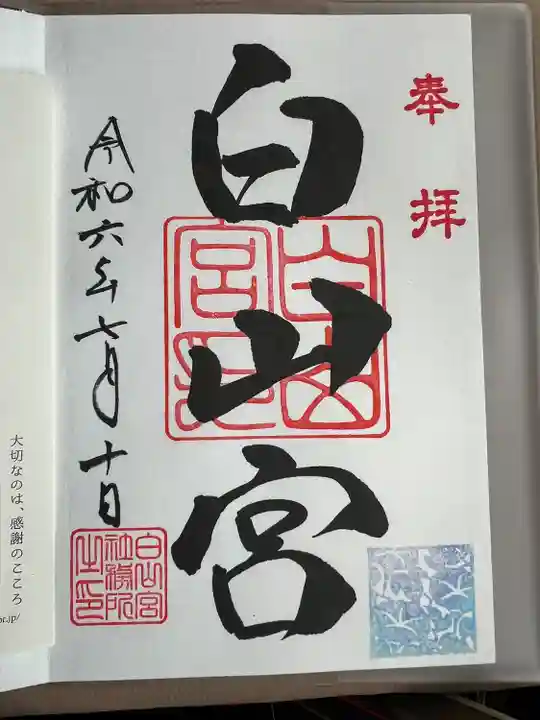 奉拝
白山宮
白山宮印
令和六年七月十日
白山宮
社務所
之印
大切なのは、感謝のこころ
or.jp/